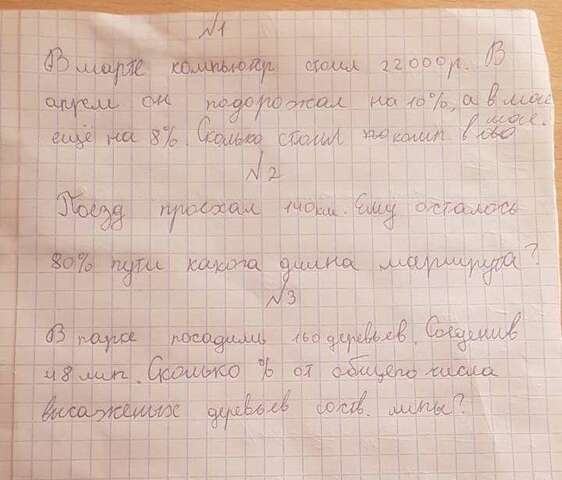 №1
В марте компьютер стоил 22000р. В
апреле он подорожал на 10%, а в мае
ещё на 8%. Сколько стоил комп. в мае.
№2
Поезд проехал 140км. Ему осталось
80% пути какова длина маршрута?
№3
В парке посадили 160 деревьев. Соеденив
48 лип. Сколько % от общего числа
высаженых деревьев соств. липы?